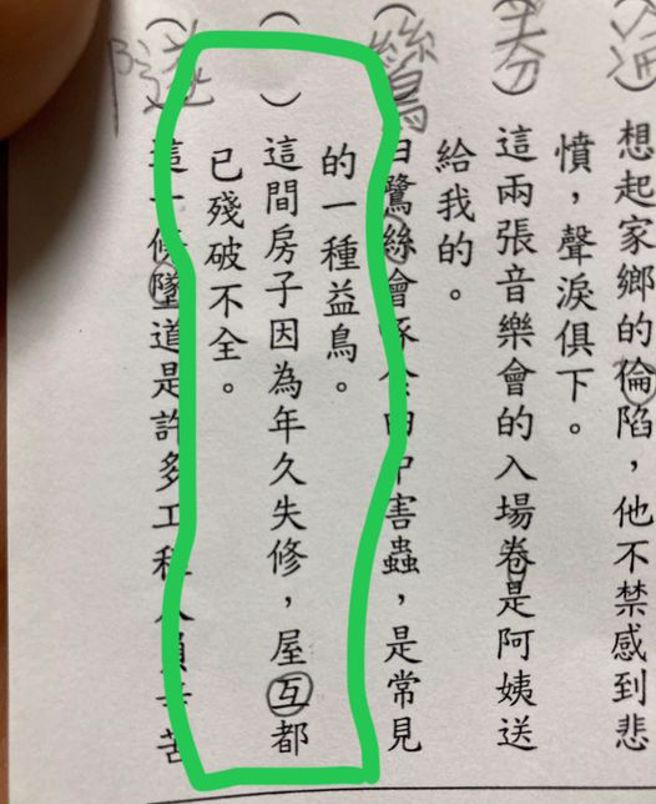 想起家鄉的倫陷，他不禁感到悲
憤，聲淚俱下。
（券）這兩張音樂會的入場卷是阿姨送
給我的。
（鷥）白鷺絲會啄食田中害蟲，是常見
的一種益鳥。
（ ）這間房子因為年久失修，屋互都
已殘破不全。
（隧）這一條墜道是許多工程人員辛苦